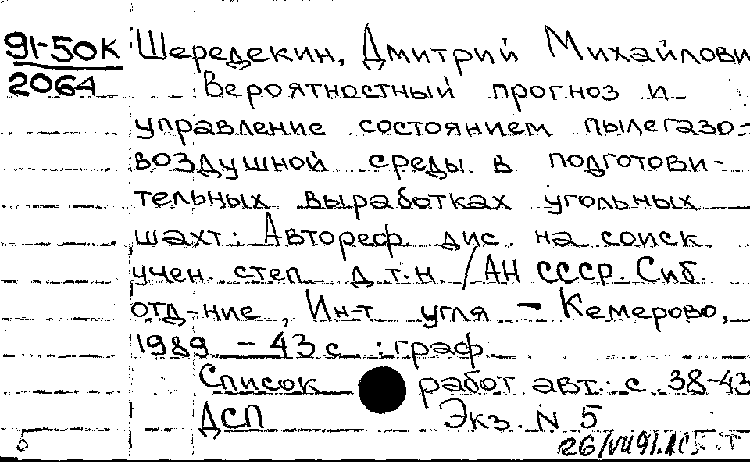 91-50К Шередекин, Дмитрий Михайлови
2064 Вероятностный прогноз и
управление состоянием пылегазо-
воздушной среды в подготови-
тельных выработках угольных
шахт: Автореф. дис. на соиск.
учен. степ. д.т.н. / АН СССР. Сиб.
отд-ние, Ин-т угля - Кемерово,
1989 - 43 с : граф.
Список работ авт.: с. 38-43
ДСП Экз. N 5
26/VII 91.